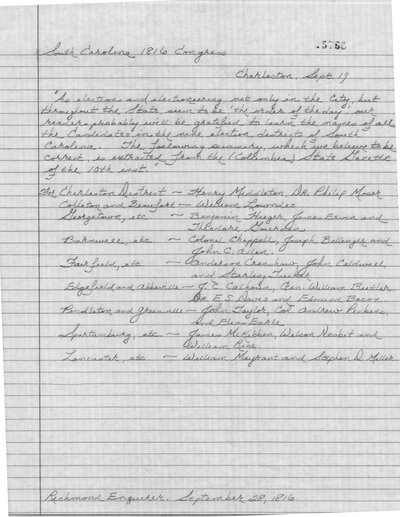 South Carolina 1816 Congress
15766
Charleston, Sept. 19
"As elections and electioneering, not only in the City, but
throughout the State, seem to be "the order of the day", our
readers probably will be gratified to learn the names of all
the Candidates in the nine election districts of South
Carolina. The following summary, which we believe to be
correct, is extracted from the (Columbia) State Gazette
of the 10th inst."
For Charleston District — Henry Middleton, Dr. Philip Moser
Colleton and Beaufort — William Lowndes
Georgetown, etc — Benjamin Huger, James Ervin and
Theodore Gourdin
Barnwell, etc. — Colonel Chappell, Joseph Bellinger and
John C. Allen.
Fairfield, etc — Anderson Crenshaw, John Caldwell
and Starling Tucker
Edgefield and Abbeville — J. C. Calhoun, Gen. William Butler,
Dr. E. S. Davis and Edmund Bacon
Pendleton and Greenville — John Taylor, Col. Andrew Pickens,
and Elias Earle
Spartanburg, etc. — James McKibben, Wilson Nesbit and
William Rice.
Lancaster, etc — William Mayrant and Stephen D. Miller
Richmond Enquirer. September 28, 1816.